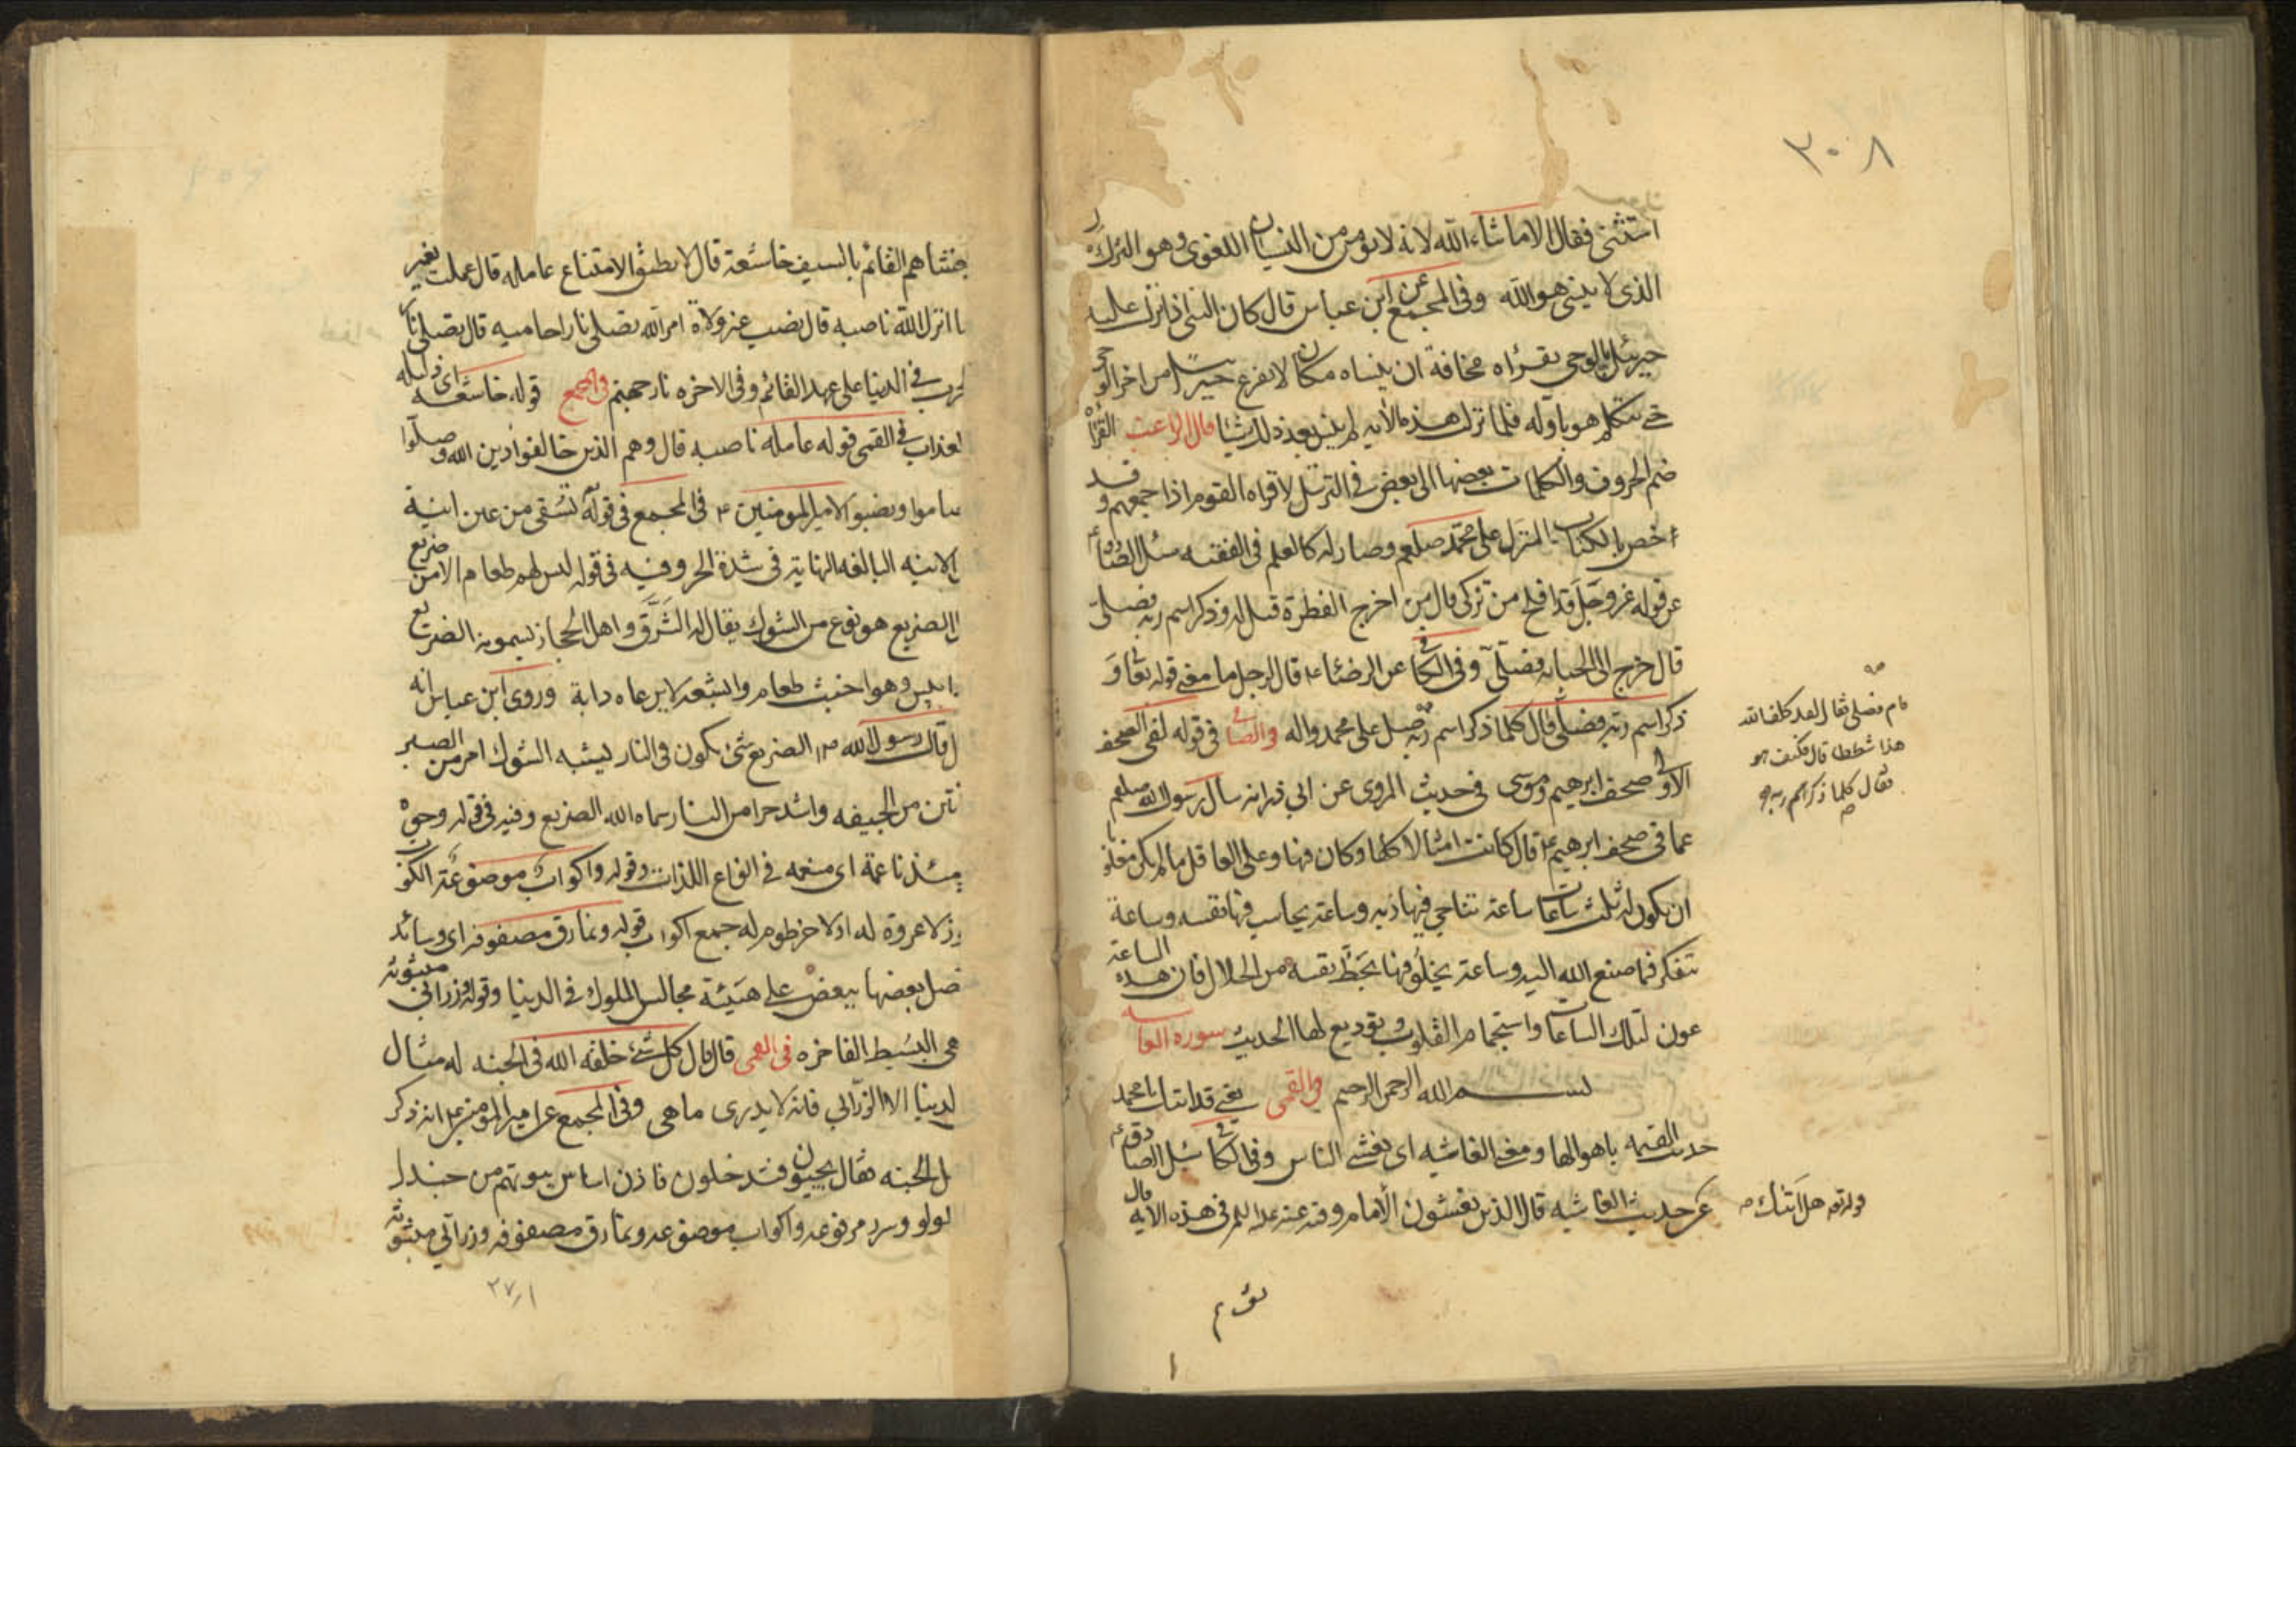 ٣٠٨
استثنى فقال الا ما شاء الله لانه لا يؤمن من النسيان اللغوى وهو الترك لان
الذى لا ينسى هو الله وفى المجمع عن ابن عباس قال كان النبى اذا نزل عليه
جبرئيل بالوحى يقرأه مخافة ان ينساه فكان لا يفرغ جبرئيل من اخر الوحى
حتى يتكلم هو باوله فلما نزل هذه الآيه لم ينس بعد ذلك شيئا قال الراغب القرأن
ضم الحروف والكلمات بعضها الى بعض فى الترتيل لا قراه القوم اذا جمعهم وقد
خص بالكتاب المنزل على محمد صلعم وصار له كالعلم فى الفقيه سئل الصادق ع
عن قوله عز وجل قد افلح من تزكى قال من اخرج الفطرة قيل له وذكر اسم ربه فصلى
قال خرج الى الجبانه فصلى وفى الكافى عن الرضا ع قال لرجل ما معنى قوله تعالى و
ذكر اسم ربه فصلى قال كلما ذكر اسم ربه صلى على محمد واله وفى الصافى فى قوله لفى الصحف
الاولى صحف ابرهيم وموسى فى حديث المروى عن ابى ذر انه سال رسول الله صلعم
عما فى صحف ابرهيم ع قال كانت امثالا كلها وكان فيها وعلى العاقل ما لم يكن مغلوبا
ان يكون له ثلث ساعات ساعة يناجى فيها ربه وساعة يحاسب فيها نفسه وساعة
تتفكر فيما صنع الله اليه وساعة يخلو فيها بحظ نفسه من الحلال فان هذه الساعة
عون لتلك الساعات واستجمام القلوب وتوديع لها الحديث سورة الغاشيه
بسم الله الرحمن الرحيم والقمى يعنى قد اتاك يا محمد
حديث القيمه باهوالها ومعنى الغاشيه اى يغشى الناس وفى الكافى سئل الصادق ع
عن حديث الغاشيه قال الذين يغشون الامام وفيه عنه عليه السلم فى هذه الايه قال
قام فصلى فقال لقد كلف الله
هذا شططا قال فكيف هو
فقال كلما ذكر اسم ربه
قوله تع هل اتيك
يغشاهم القائم بالسيف خاشعة قال لا يطيق الامتناع عامله قال عملت بغير
ما انزل الله ناصبه قال نصب غير ولاة امر الله تصلى نارا حاميه قال تصلى نار
الحرب فى الدنيا على عهد القائم وفى الاخره نار جهنم وفى المجمع قوله خاشعه اى ذليله
بالعذاب فى القمى قوله عامله ناصبه قال وهم الذين خالفوا دين الله وصلوا
وصاموا ونصبوا لامير المومنين ع فى المجمع فى قوله تسقى من عين انية
الانيه البالغه النهاية فى شدة الحر وفيه فى قوله ليس لهم طعام الا من ضريع
الضريع هو نوع من الشوك يقال له الشرق واهل الحجاز يسمونه الضريع
اذا يبس وهو اخبث طعام وابشعه لا يرعاه دابة وروى ابن عباس انه
قال قال رسول الله ص الضريع شئ يكون فى النار يشبه الشوك امر من الصبر
وانتن من الجيفه واشد حرا من النار سماه الله الضريع وفيه فى قوله وجوه
يومئذ ناعمة اى منعمه فى انواع اللذات وقوله واكواب موضوعة الكوب
كوز لا عروة له او لا خرطوم له جمع اكواب قوله ونمارق مصفوفه اى وسائد
متصل بعضها ببعض على هيئة مجالس الملوك فى الدنيا وقوله وزرابى مبثوثه
هى البسيط الفاخره فى القمى قال قال كل شئ خلقه الله فى الجنه له مثال
فى الدنيا الا الزرابى فانه لا يدرى ما هى وفى المجمع عن امير المؤمنين ع انه ذكر
اهل الجنه فقال يجيئون فتدخلون فاذن اساس بيوتهم من جندل
لولو وسرر مرفوعه واكواب موضوعه ونمارق مصفوفه وزرابى مبثوثه